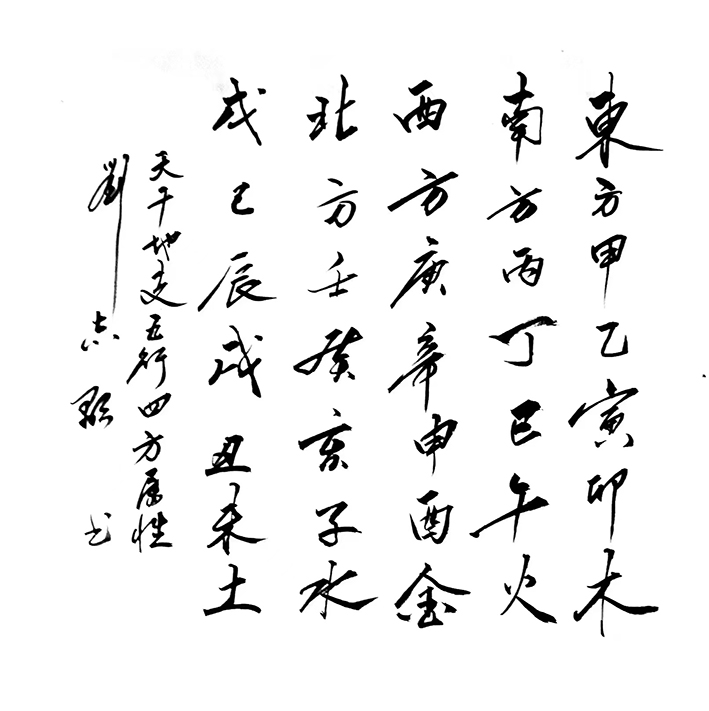 東方甲乙寅卯木
南方丙丁巳午火
西方庚辛申酉金
北方壬癸亥子水
戊己辰戌丑未土
天干地支五行四方属性
劉志